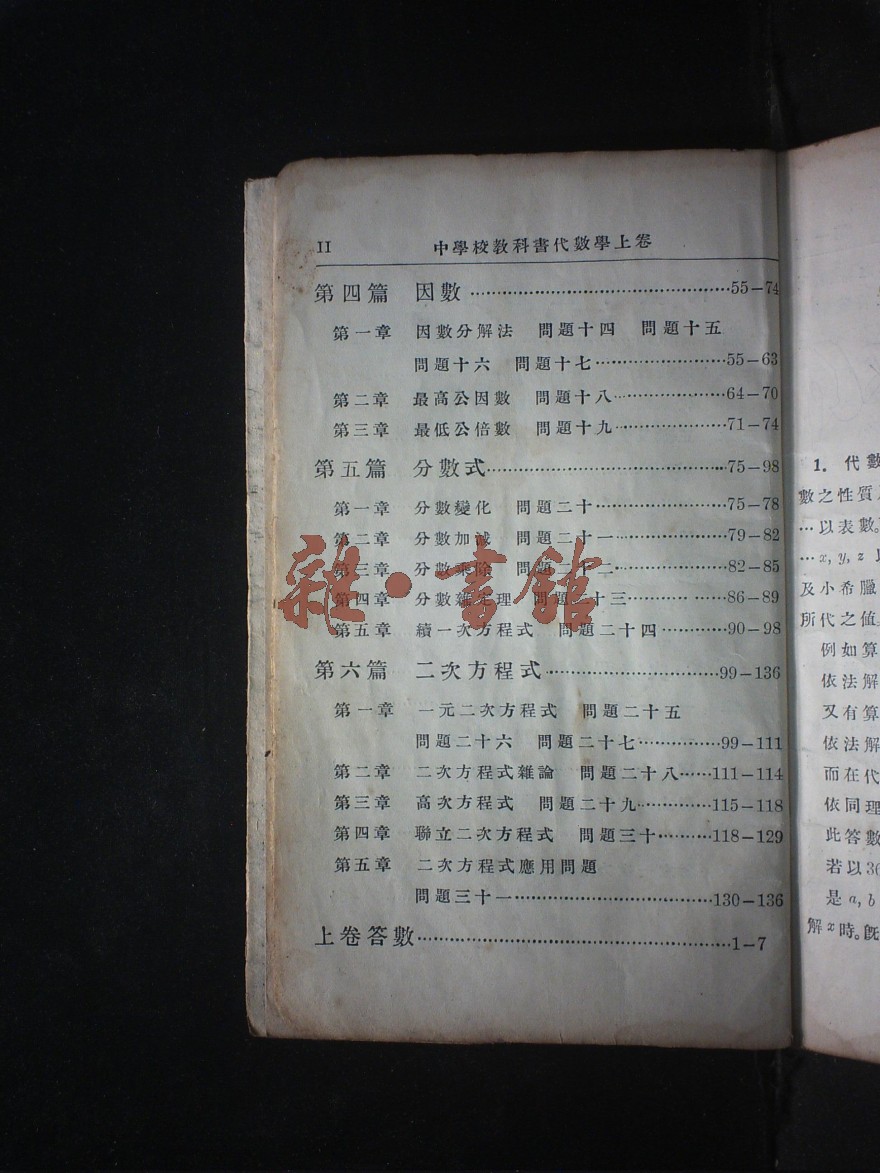 II 中學校教科書代數學上卷
第四篇 因數……55-74
第一章 因數分解法 問題十四 問題十五
問題十六 問題十七……55-63
第二章 最高公因數 問題十八……64-70
第三章 最低公倍數 問題十九……71-74
第五篇 分數式……75-98
第一章 分數變化 問題二十……75-78
第二章 分數加減 問題二十一……79-82
第三章 分數乘除 問題二十二……82-85
第四章 分數雜定理 問題二十三……86-89
第五章 續一次方程式 問題二十四……90-98
第六篇 二次方程式……99-136
第一章 一元二次方程式 問題二十五
問題二十六 問題二十七……99-111
第二章 二次方程式雜論 問題二十八……111-114
第三章 高次方程式 問題二十九……115-118
第四章 聯立二次方程式 問題三十……118-129
第五章 二次方程式應用問題
問題三十一……130-136
上卷答數……1-7
雜·書館
1. 代數
數之性質
…以表數。
…x, y, z
及小希臘
所代之値
例如算
依法解
又有算
依法解
而在代
依同理
此答數
若以3
是 a, b
解x時。旣